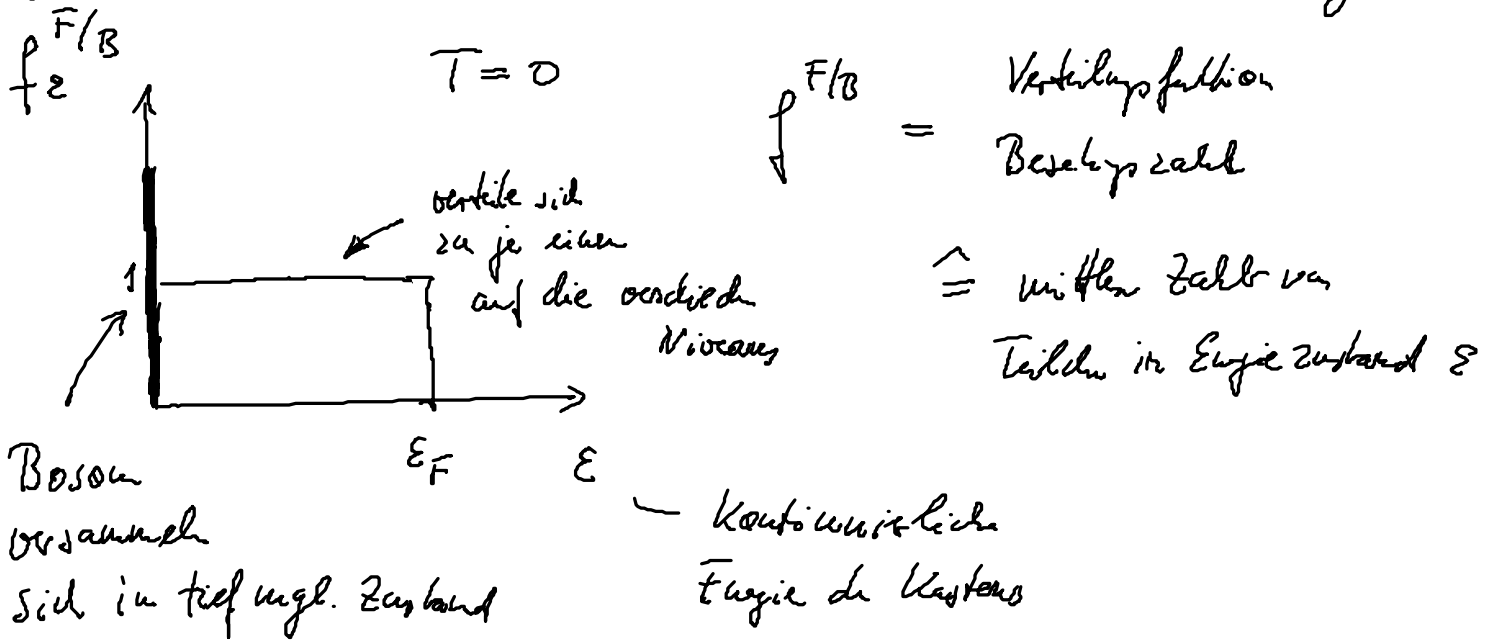 f_ε^{F/B}
T = 0
f^{F/B} = Verteilungsfunktion
Besetzungszahl
≙ mittlere Zahl von
Teilchen in Energiezustand ε
verteile sich
zu je einem
auf die verschieden
Niveaus
1
ε_F
ε
Bosonen
versammeln
sich im tiefmgl. Zustand
Kontinuierliche
Energie des Kastens